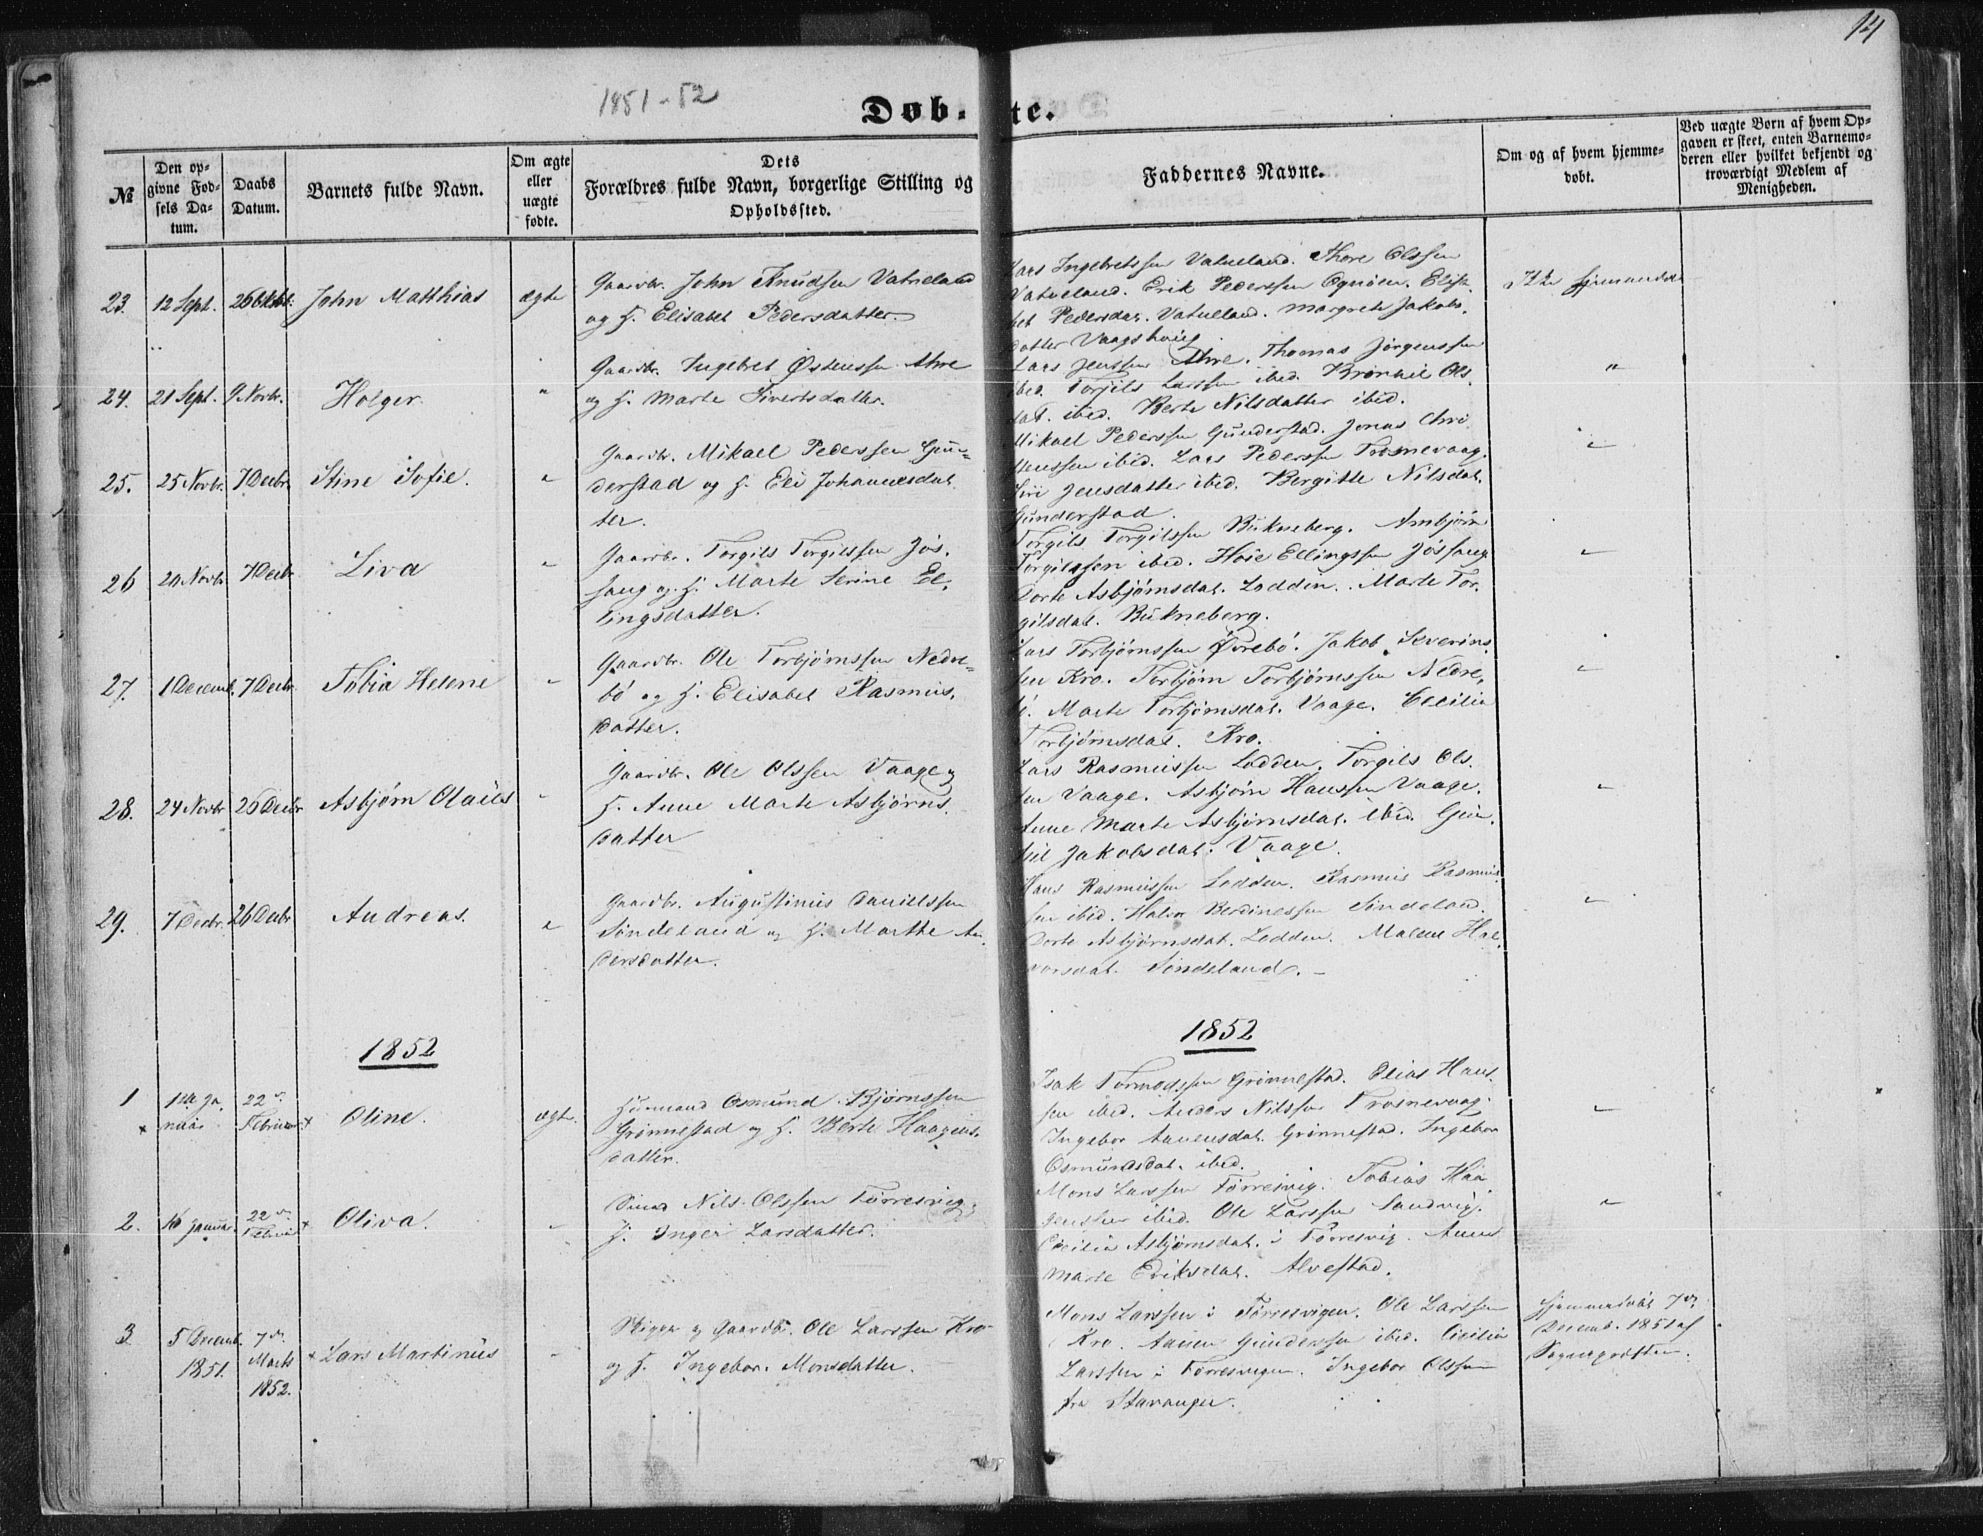 14
1851-52
Døb-te.
№
Den opgivne Fødsels Datum.
Daabs Datum.
Barnets fulde Navn.
Om ægte eller uægte fødte.
Dets Forældres fulde Navn, borgerlige Stilling og Opholdssted.
Faddernes Navne.
Om og af hvem hjemmedøbt.
Ved uægte Børn af hvem Opgaven er skeet, enten Barnemoderen eller hvilket bekjendt og troværdigt Medlem af Menigheden.
23. 12 Sept. 26 Oktbr. John Matthias ægte
Gaardbr. John Knudsen Vatneland
og H. Elisabet Pedersdatter
Lars Ingebretssen Vatneland. Thore Olssen
Vatneland. Erik Pederssen Ognøen. Elisa-
bet Pedersdat. Vatneland. Margrete Jakobs-
datter Vaagshoug
Ikke hjemmedøbt
24. 21 Sept. 9 Novbr. Holger. "
Gaardbr. Ingebret Østenssen Ahre
og H. Marte Sivertsdatter.
Lars Jenssen Ahre. Thomas Jørgenssen
ibid. Torgils Larssen ibid. Brønhil Ols-
dat. ibid. Berte Nilsdatter ibid.
"
25. 25 Novbr. 7 Decbr. Stine Sofie. "
Gaardbr. Mikael Pederssen Gun-
derstad og H. Eli Johannesdat-
ter.
Mikael Pederssen Gunderstad. Jonas Chri-
stenssen ibid. Lars Pederssen Trosnevaag.
Siri Jensdatter ibid. Bergitte Nilsdat.
Gunderstad.
"
26 20 Novbr. 7 Decbr. Liva "
Gaardbr. Torgils Torgilssen Jøs-
sang og H. Marte Serine El-
lingsdatter.
Torgils Torgilssen Bukneberg. Ambjørn
Torgilssen ibid. Hoie Ellingssen Jøssang
Dorte Asbjørnsdat. Lodden. Marte Tor-
gilsdat. Bukneberg.
"
27. 1 Decemb. 7 Decbr. Tobia Helene "
Gaardbr. Ole Torbjørnssen Nedre-
bø og H. Elisabet Rasmus-
datter.
Lars Torbjørnssen Øvrebø. Jakob Severins-
sen Kro. Torbjørn Torbjørnssen Nedre-
bø. Marte Torbjørnsdat. Vaage. Cecilia
Torbjørnsdat. Kro.
"
28. 24 Novbr 26 Decbr Asbjørn Olaus "
Gaardbr. Ole Olssen Vaage og
H. Anne Marte Asbjørns-
datter
Lars Rasmussen Lodden. Torgils Ols-
sen Vaage. Asbjørn Hanssen Vaage.
Anne Marte Asbjørnsdat. ibid. Gun-
hil Jakobsdat. Vaage.
"
29. 7 Decbr. 26 Decbr Andreas. "
Gaardbr. Augustinus Danielssen
Søndeland og H. Marthe An-
dersdatter.
Hans Rasmussen Lodden. Rasmus Rasmus-
sen ibid. Halvor Berdinessen Søndeland.
Dorte Asbjørnsdat. Lodden. Malene Hal-
vorsdat. Søndeland. -
"
1852
1852
1 Januar 22 Februar Oline. ægte.
Huusmand Osmund Bjørnssen
Grønnestad og H. Berte Haagens-
datter.
Isak Tormodssen Grønnestad. Elias Hans-
sen ibid. Anders Nilssen Trosnevaag.
Ingebor Aanensdat. Grønnestad. Ingebor
Osmundsdat. ibid.
"
2. 16 Januar. 22 Februar Oliva. "
Nils Olssen Førresvig,
H. Inger Larsdatter.
Mons Larssen Førresvig. Tobias Haa-
genssen ibid. Ole Larssen Sandvig.
Cecilia Asbjørnsdat. i Førresvig. Anne
Marte Eriksdat. Alvestad.
"
3 5 Decemb. 1851. 7de Marts 1852. Lars Martinus "
og Gaardb. Ole Larssen Kro
og H. Ingebor. Monsdatter.
Mons Larssen i Førresvigen. Ole Larssen
Kro. Aanen Gunderssen ibid. Cicilia
Larssen i Førresvigen. Ingebor Olssen
fra Stavanger.
Hjemmedøbt 7de
Decemb. 1851 af
Sognepræsten.